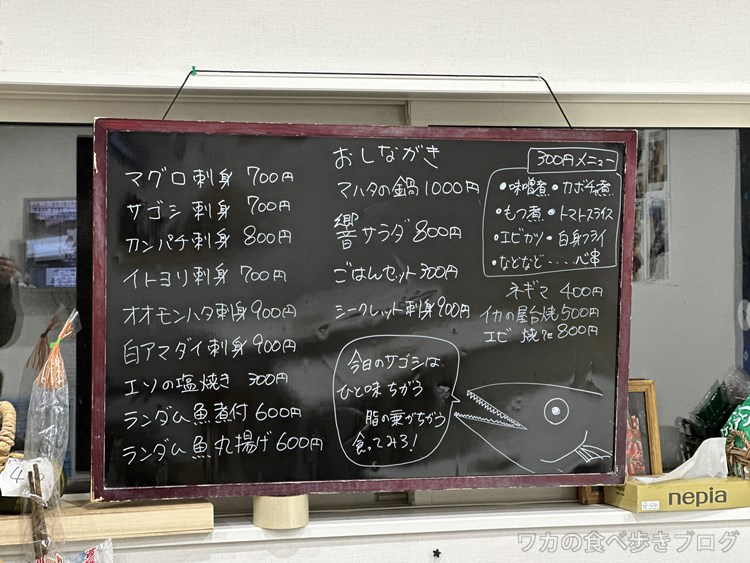 マグロ刺身 700円
サゴシ刺身 700円
カンパチ刺身 800円
イトヨリ刺身 700円
オオモンハタ刺身 900円
白アマダイ刺身 900円
エソの塩焼き 300円
ランダム魚煮付 600円
ランダム魚丸揚げ 600円
おしながき
マハタの鍋 1000円
響サラダ 800円
ごはんセット 300円
シークレット刺身 900円
今日のサゴシは
ひと味ちがう
脂の乗がちがう
食ってみろ!
300円メニュー
・味噌煮・カボチャ煮
・もつ煮・トマトスライス
・エビカツ・白身フライ
・などなど・・・・串
ネギマ 400円
イカの屋台焼 500円
エビ 焼 800円
nepia
ワカの食べ歩きブログ